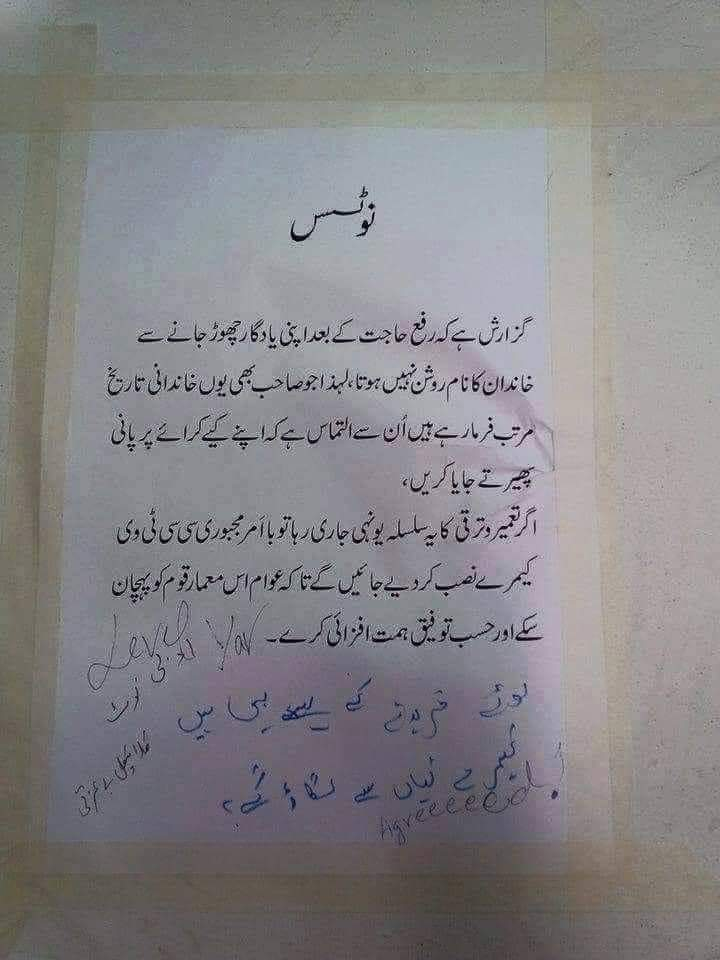 نوٹس
گزارش ہے کہ رفع حاجت کے بعد اپنی یادگار چھوڑ جانے سے
خاندان کا نام روشن نہیں ہوتا، لہذا جو صاحب بھی یوں خاندانی تاریخ
مرتب فرما رہے ہیں اُن سے التماس ہے کہ اپنے کیے کرائے پر پانی
پھیرتے جایا کریں،
اگر تعمیر و ترقی کا یہ سلسلہ یونہی جاری رہا تو با اَمر مجبوری سی سی ٹی وی
کیمرے نصب کر دیے جائیں گے تاکہ عوام اس معمار قوم کو پہچان
سکے اور حسب توفیق ہمت افزائی کرے۔
Level Yar
لوٹے خریدنے کے پیسے نہیں ہیں
کیمرے کہاں سے لگاؤ گے؟
Agreeeeeed!